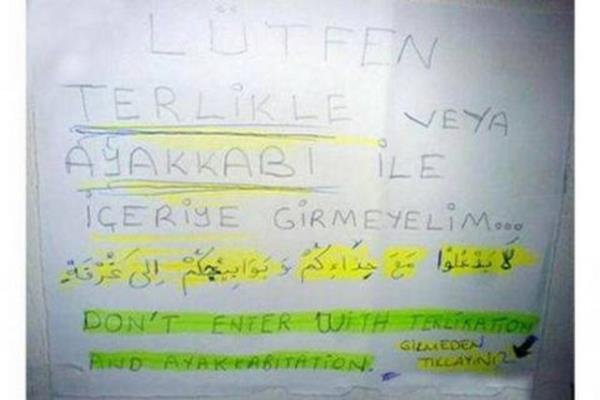 LÜTFEN
TERLİKLE VEYA
AYAKKABI İLE
İÇERİYE GİRMEYELİM...
لَا يَدْخُلُوا مَعَ حِذَاءِكُمْ وَ بَوَابِيجِكُمْ إِلَى غُرْفَةِ
DON'T ENTER WITH TERLIKATION
AND AYAKKABITATION.
GİRMEDEN
TIKLAYINIZ